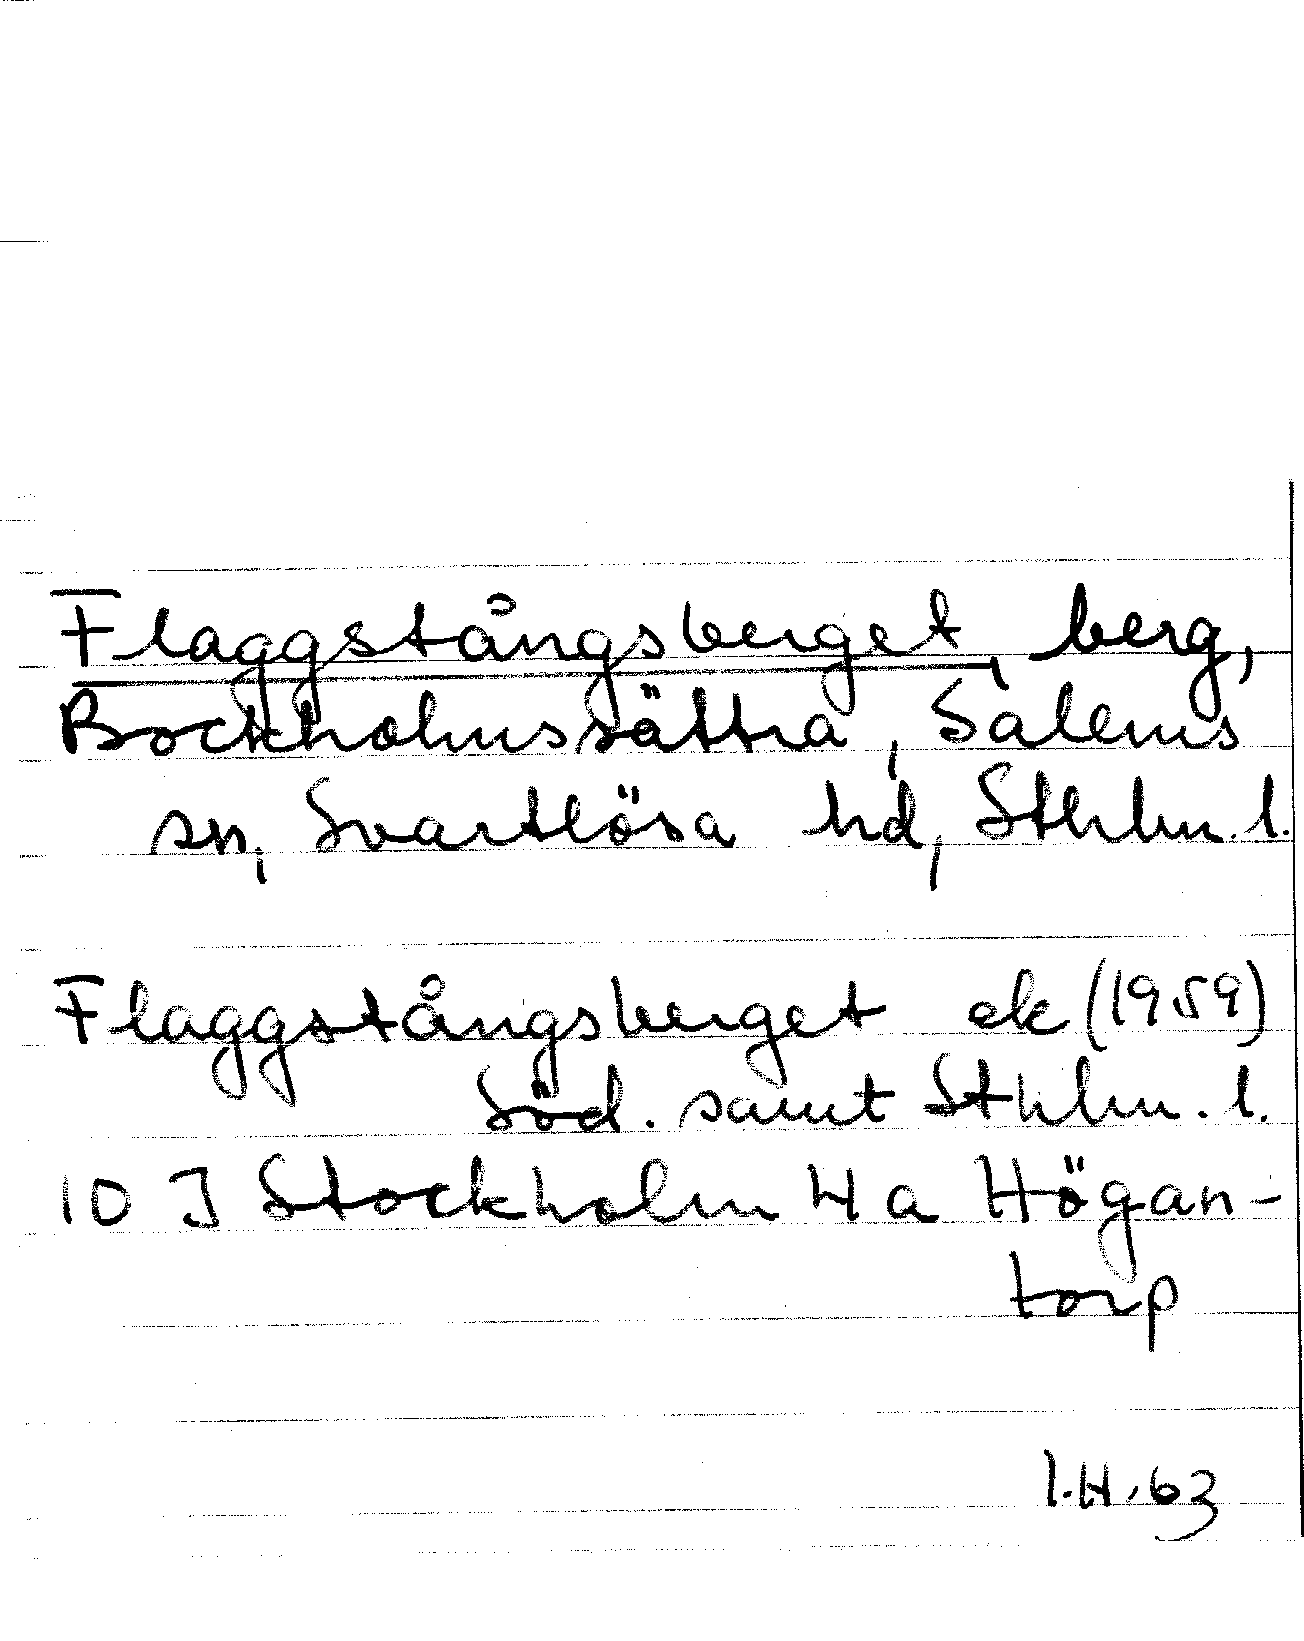 Flaggstångsberget, berg,
Bockholmssättra, Salems
sn, Svartlösa hd, Sthlm. l.
Flaggstångsberget ek (1959)
Söd. samt Sthlm. l.
10 J Stockholm 4 a Högan-
torp
I.H. 63